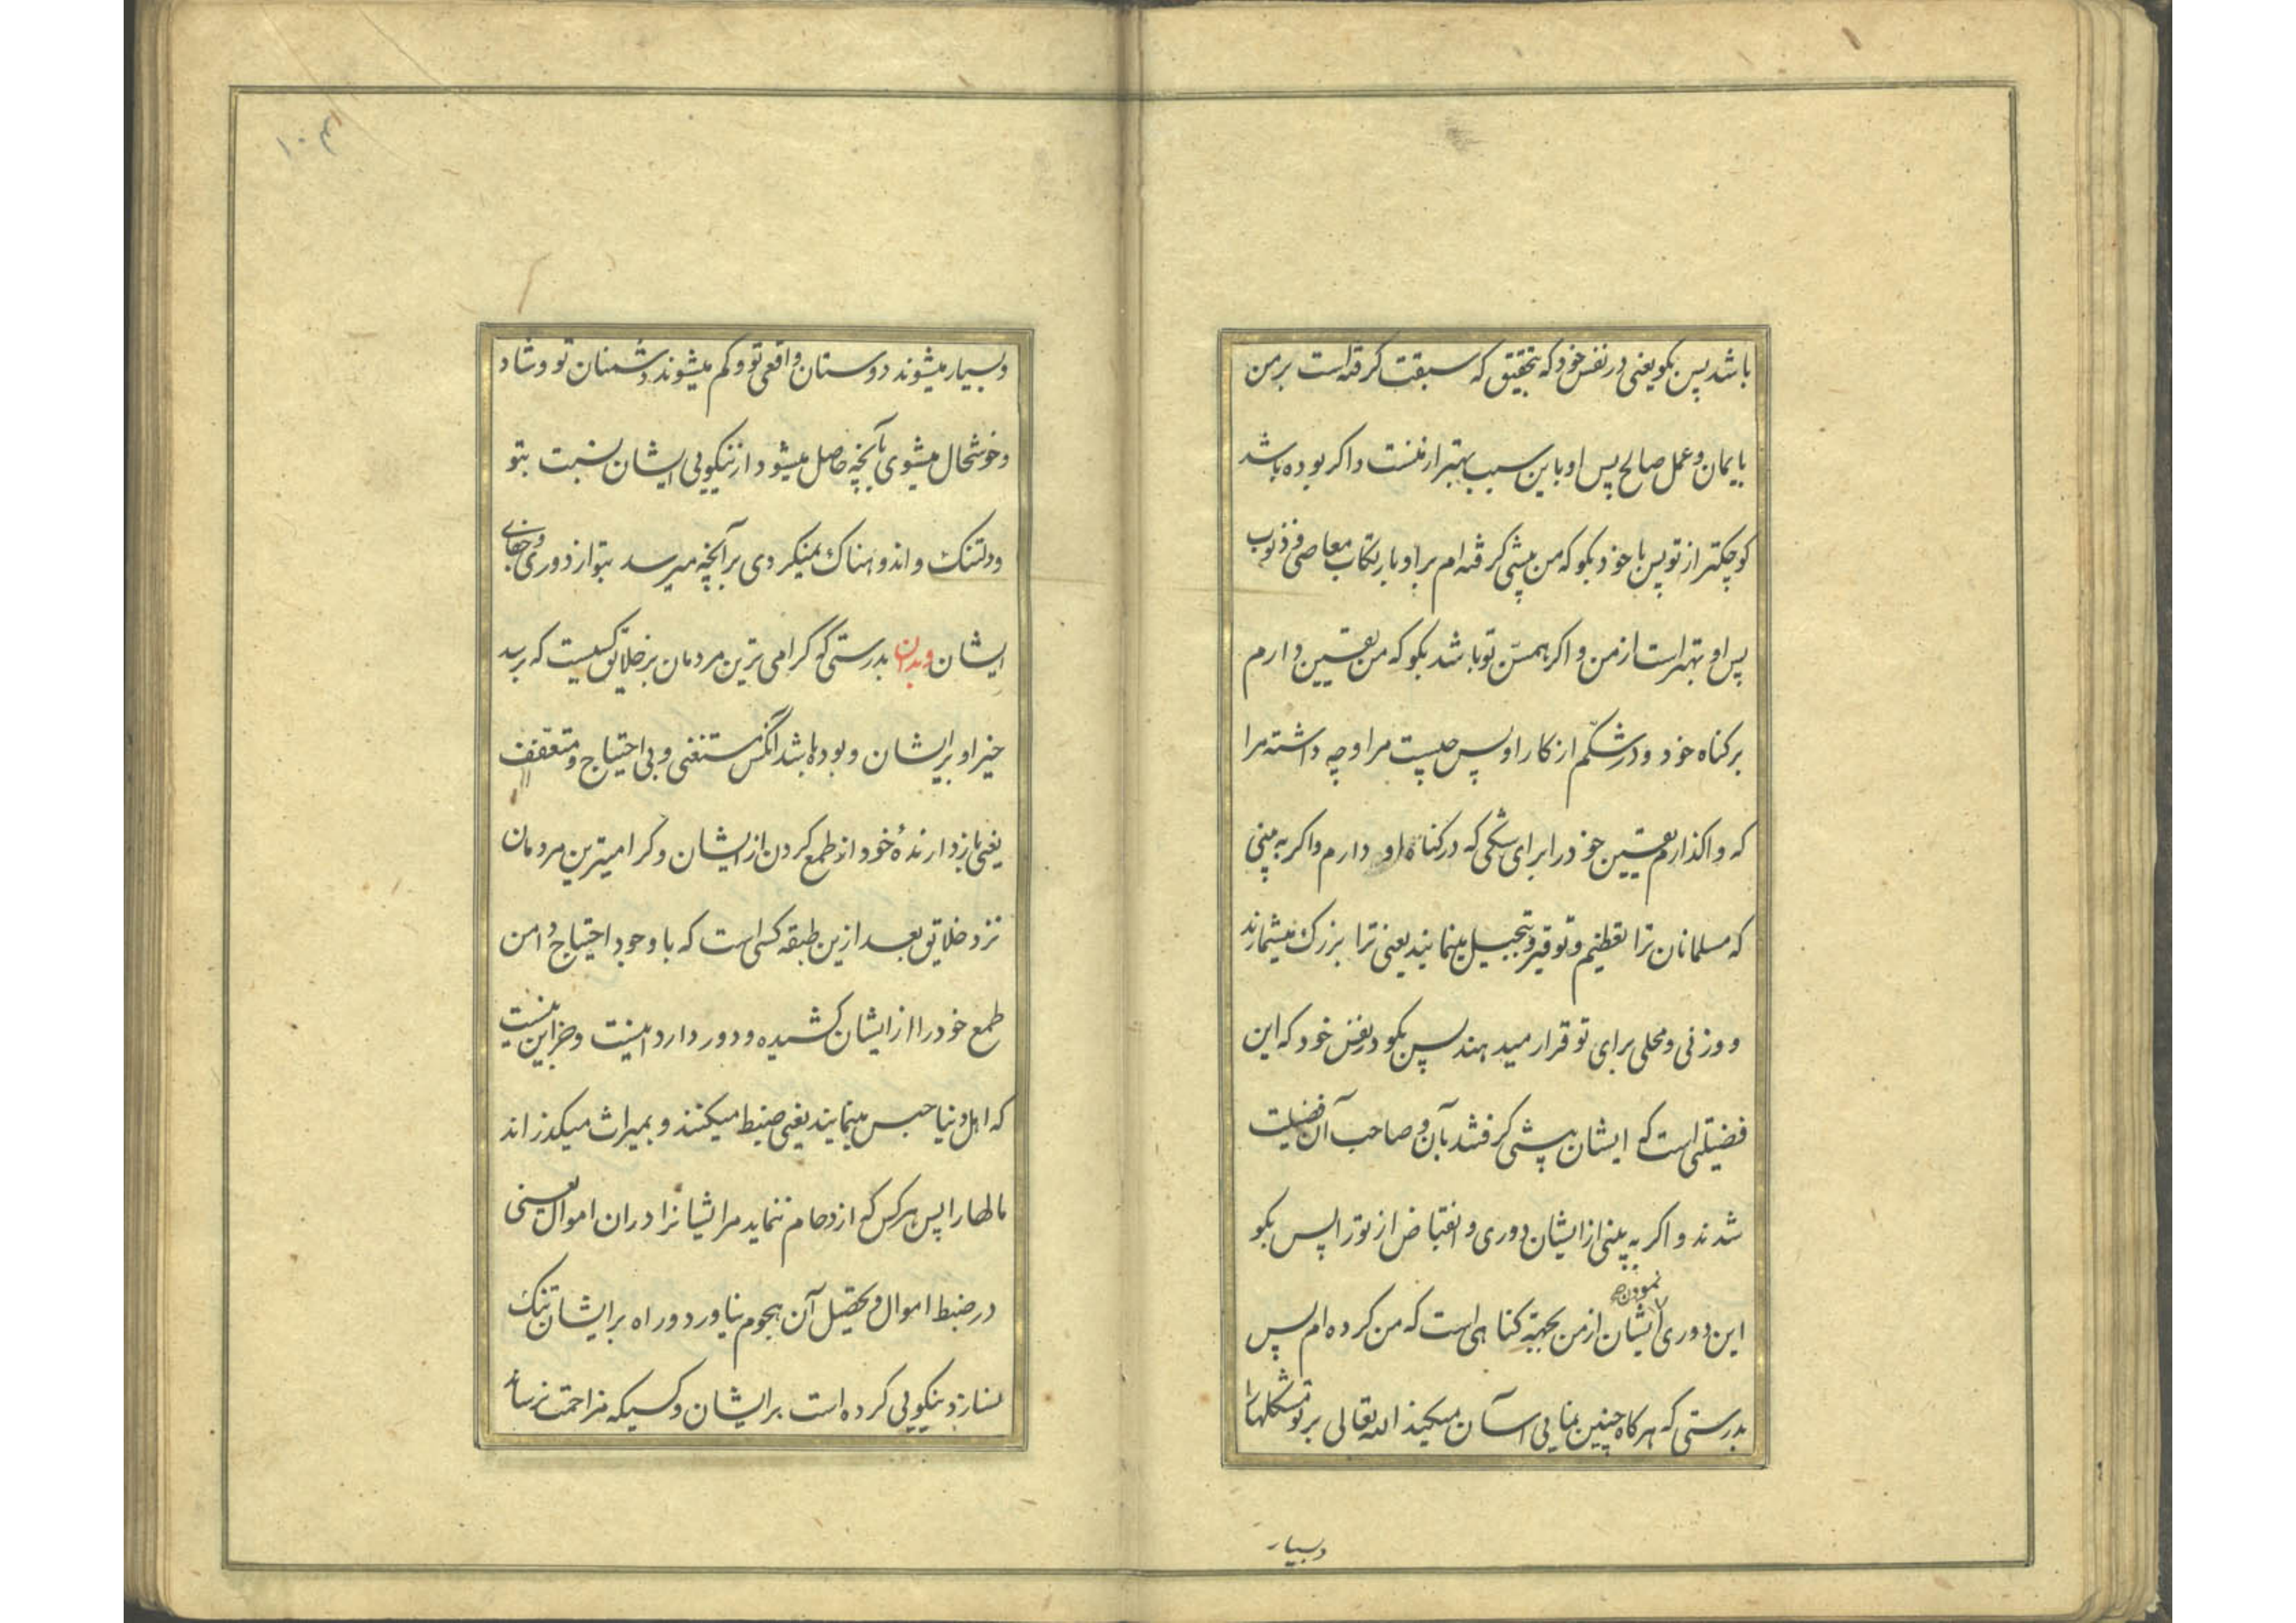 باشد پس بکو یعنی در نفس خود که بتحقیق که سبقت کرفته است بر من
بایمان و عمل صالح پس او باین سبب بهتر از منست و اکر بوده باشد
کوچکتر از تو پس با خود بکو که من پیشی کرفته ام بر او بارتکاب معاصی و ذنوب
پس او بهتر است از من و اکر همسن تو باشد بکو که من یقین دارم
بر کناه خود و در شکم از کار او پس چیست مرا و چه داشته مرا
که واکذارم یقین خود را برای شکی که در کناه او دارم و اکر به بینی
که مسلمانان ترا تعظیم و توقیر و تبجیل مینمایند یعنی ترا بزرک میشمارند
و وزنی و محلی برای تو قرار میدهند پس بکو در نفس خود که این
فضیلتی است که ایشان پیشی کرفتند بآن و صاحب آن فضیلت
شدند و اکر به بینی از ایشان دوری و انقباض از تو را پس بکو
نمودن
این دوری ایشان از من بجهة کناهی است که من کرده ام پس
بدرستی که هرکاه چنین نمایی آسان میکند الله تعالی بر تو مشکلها را
وبسیار
۱۰۴
وبسیار میشوند دوستان واقعی تو و کم میشوند دشمنان تو و شاد
و خوشحال میشوی بآنچه حاصل میشود از نیکویی ایشان نسبت بتو
و دلتنک و اندوهناک نمیکردی بر آنچه میرسد بتو از دوری و جفای
ایشان وبدان بدرستی که کرامی ترین مردمان بر خلایق کسیست که برسد
خیر او بر ایشان و بوده باشد آنکس مستغنی و بی احتیاج و متعفف
یعنی بازدارندهٔ خود از طمع کردن از ایشان و کرامیترین مردمان
نزد خلایق بعد ازین طبقه کسی است که با وجود احتیاج دامن
طمع خود را از ایشان کشیده و دور دارد اینست و جز این نیست
که اهل دنیا حبس مینمایند یعنی ضبط میکنند و بمیراث میکذرانند
مالها را پس هر کس که ازدحام ننماید مر ایشانرا در ان اموال یعنی
در ضبط اموال و تحصیل آن هجوم نیاورد و راه بر ایشان تنک
نسازد نیکویی کرده است بر ایشان و کسیکه مزاحمت نرساند